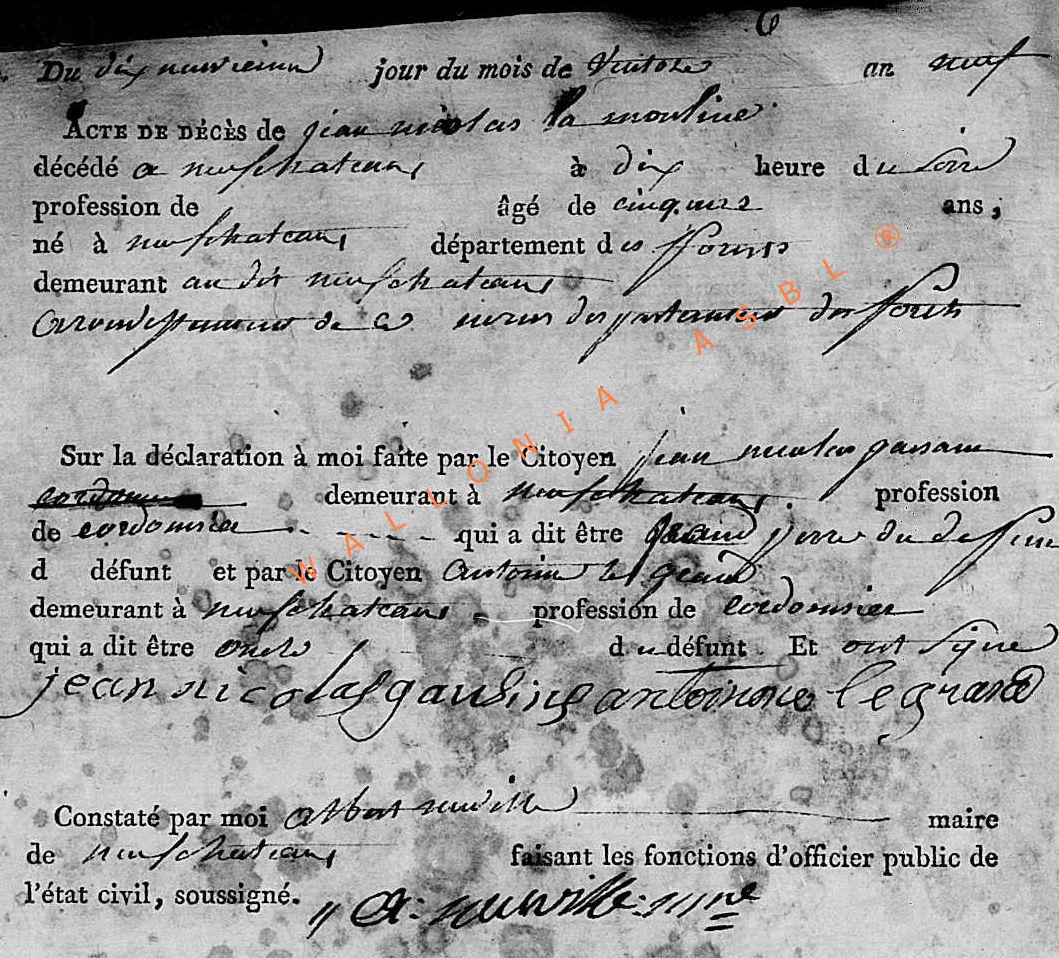 Du dix neuvieme jour du mois de Ventose an neuf
ACTE DE DÉCÈS de jean nicolas la mouline
décédé a neufchateau à dix heure du soire
profession de âgé de cinq ans,
né à neufchateau département des forets
demeurant au dit neufchateau
arondissement de ce departement des forets
Sur la déclaration à moi faite par le Citoyen jean nicolas
demeurant à neufchateau profession
de cordonnier qui a dit être grand pere du
d défunt et par le Citoyen antoine le grand
demeurant à neufchateau profession de cordonnier
qui a dit être oncle du défunt Et ont signe
jean nicolas le grand
Constaté par moi albert neuville maire
de neufchateau faisant les fonctions d'officier public de
l'état civil, soussigné. A: neuville
WALLONIA ASBL ®